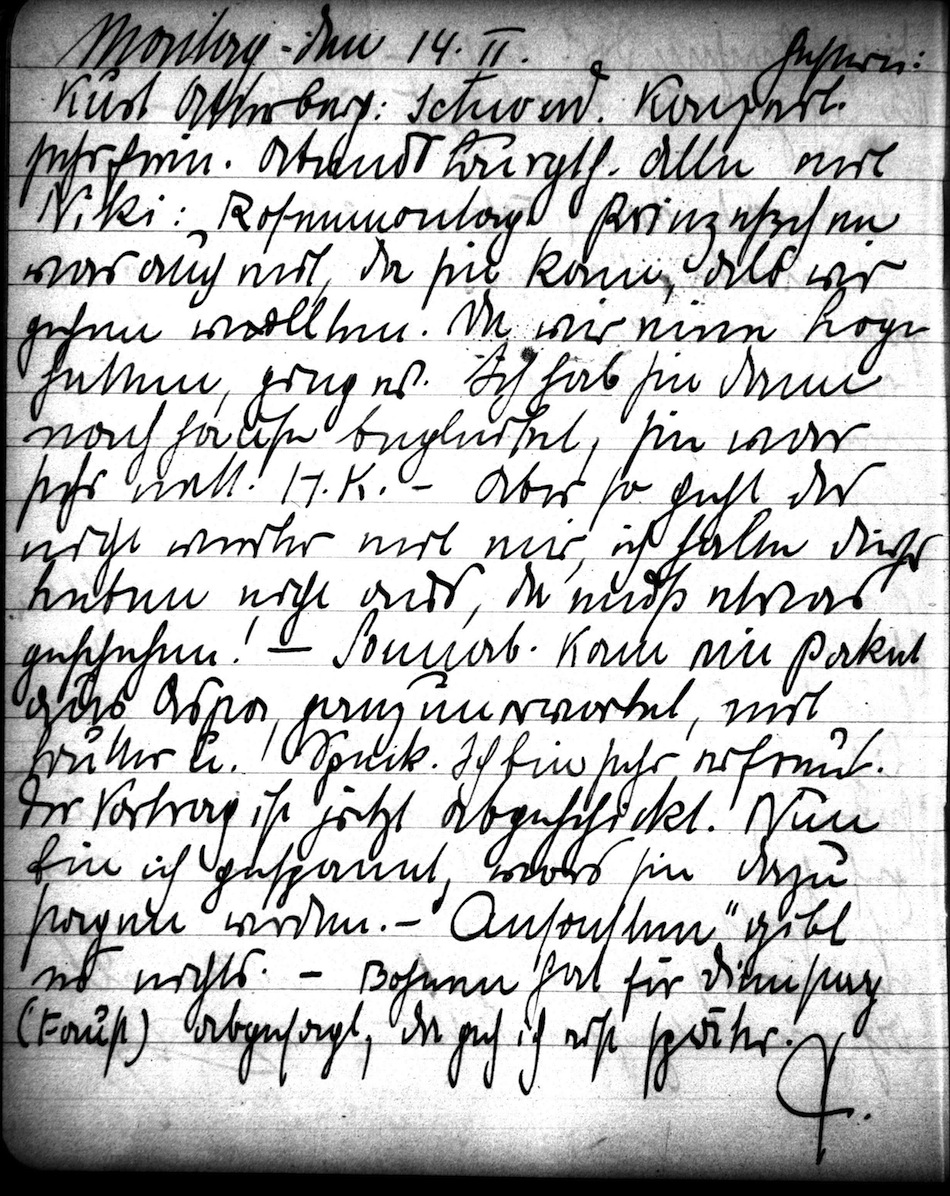 Montag - den 14. II. Gestern:
Kurt Atterberg: schwed. Konzert.
sehr fein. Abends Alln mit
Niki: Rosenmontag. Prinzeschen
war auch mit, da sie kam, als wir
gehen wollten. Da wir eine Loge
hatten, ging es. Ich hab sie dann
nach Hause begleitet, sie war
sehr nett. H.K. - Aber so geht das
nicht weiter mit mir, ich halte dieses
Leben nicht aus, da muß etwas
geschehen! — Sonnab. kam ein Paket
aus ganz unerwartet, mit
Butter u. Speck. Ich bin sehr erfreut.
Der Vortrag ist jetzt abgeschickt. Nun
bin ich gespannt, was sie dazu
sagen werden. - Ansonsten" gibt
es nichts. - hat für Dienstag
(Faust) abgesagt, da geh ich erst später.